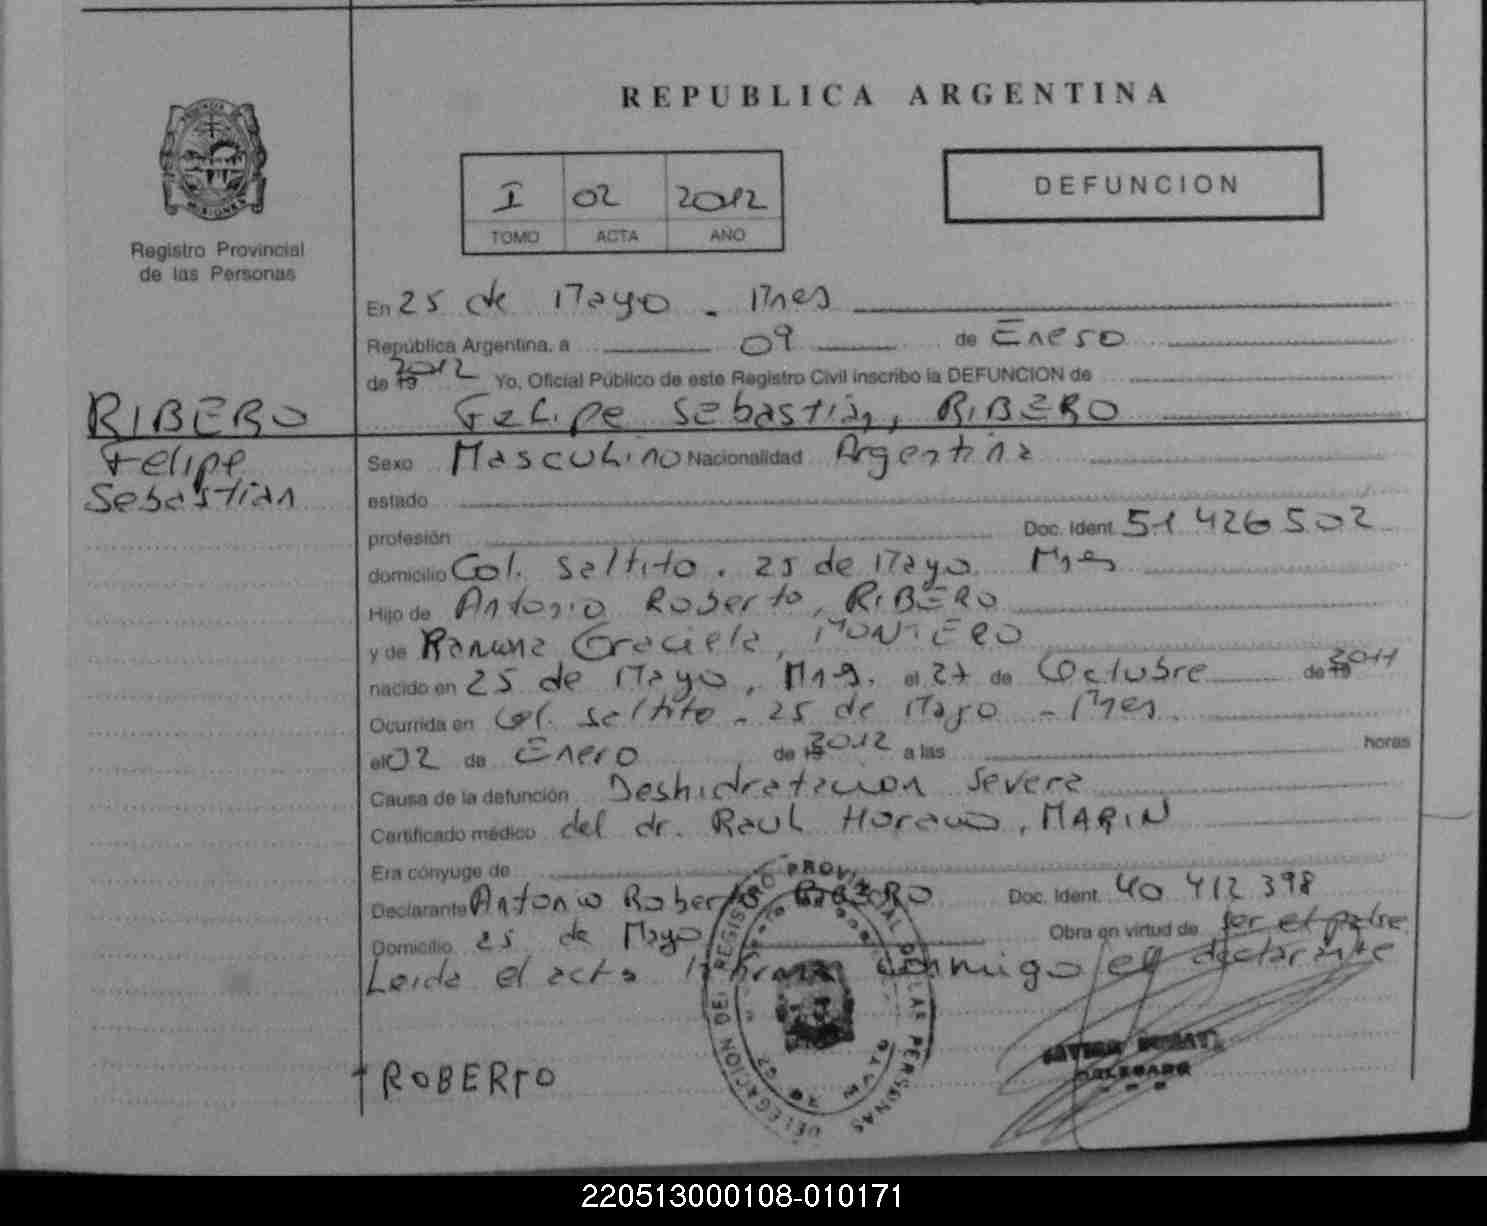 REPUBLICA ARGENTINA
I 02 2012
TOMO ACTA AÑO
DEFUNCION
Registro Provincial
de las Personas
En 25 de Mayo - Mnes
República Argentina, a 09 de Enero
de 19 2012 Yo, Oficial Público de este Registro Civil inscribo la DEFUNCION de
Felipe Sebastián, RIBERO
RIBERO
Felipe
Sebastian
Sexo Masculino Nacionalidad Argentina
estado
profesión Doc. Ident. 51 426 502
domicilio Col. Saltito. 25 de Mayo Mnes
Hijo de Antonio Roberto, RIBERO
y de Ramona Graciela, MONTERO
nacido en 25 de Mayo, Mns. el 27 de Octubre de 19 2011
Ocurrida en Col. Saltito - 25 de Mayo - Mnes
el 02 de Enero de 19 2012 a las horas
Causa de la defunción Deshidratacion severa
Certificado médico del dr. Raul Horacio, MARIN
Era cónyuge de
Declarante Antonio Roberto RIBERO Doc. Ident. 40 412 398
Domicilio 25 de Mayo Obra en virtud de ser el padre
Leida el acta la firma conmigo el declarante
ROBERTO
DELEGACION DEL REGISTRO PROVINCIAL DE LAS PERSONAS
DELEGADO
220513000108-010171